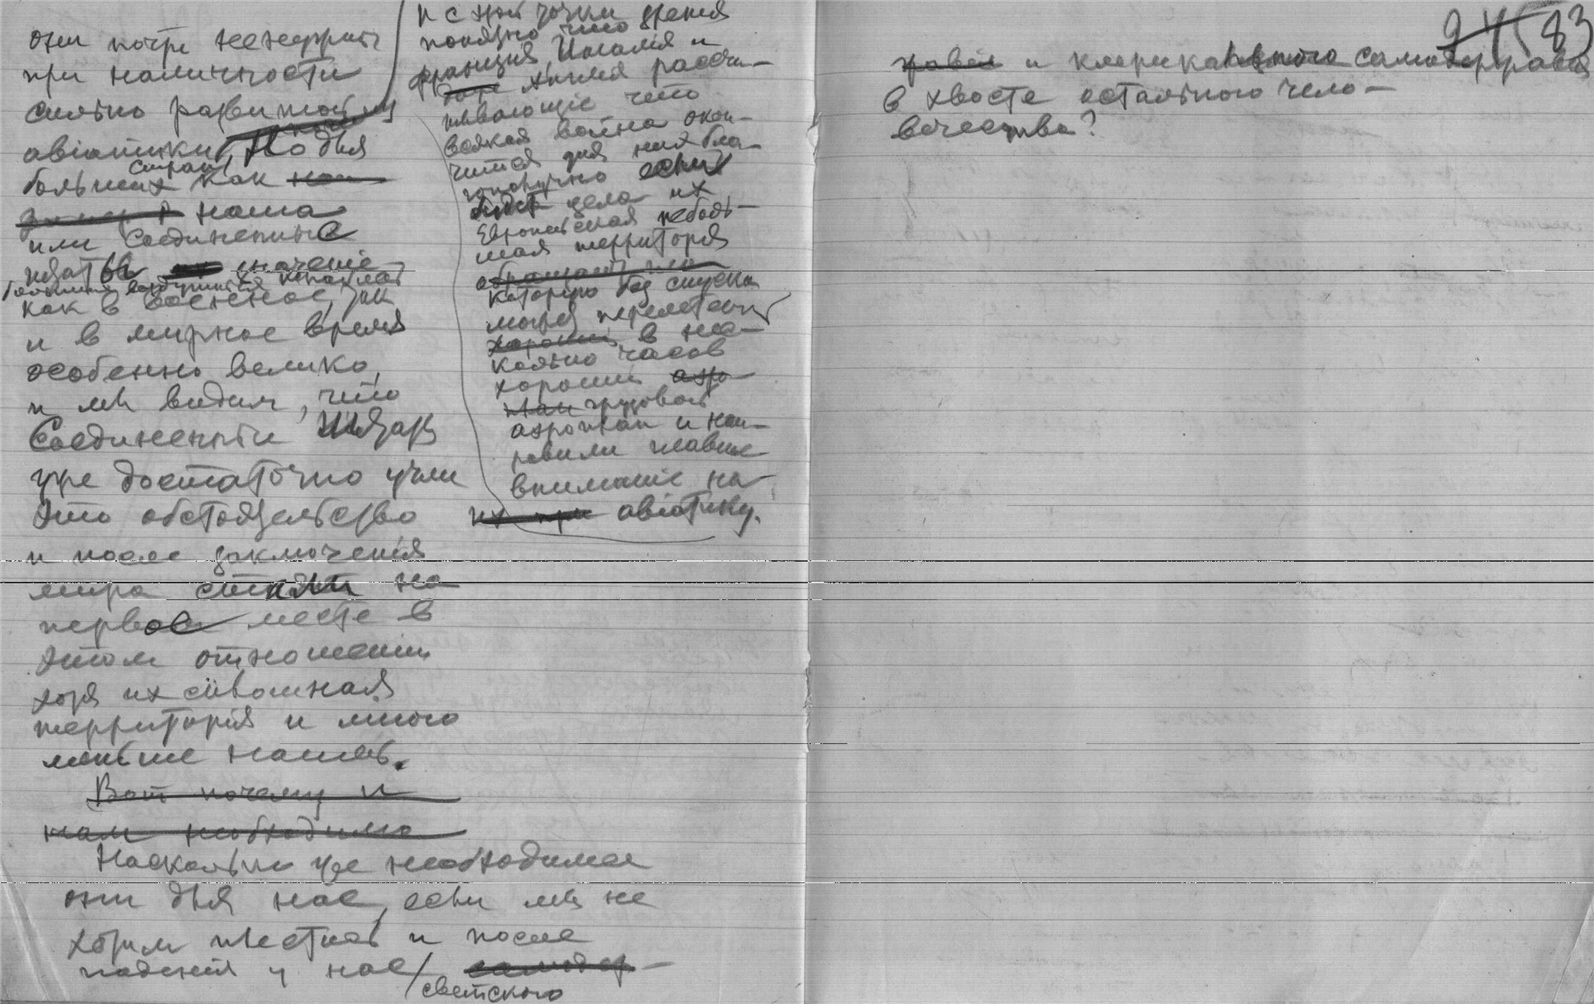 они почти не нужны
при наличности
сильно развитой
авіатики. Но для
больших стран, как
наша
или Соединенные
Штаты значеніе
как в военное, так
и в мирное время
особенно велико,
и мы видим, что
Соединенные Штаты
уже достаточно учли
это обстоятельство
и после заключенія
мира стали на
первое место в
этом отношеніи
хотя их сплошная
территорія и много
меньше нашей.
Вот почему и
нам необходимо
Насколько же необходимы
они для нас, если мы не
хотим плестись и после
паденія у нас
светского
и с этой точки зренія
понятно что
Франція, Италія и
Англія рассчи-
тывающіе что
всякая война окон-
чится для них бла-
гополучно если
цела их
Европейская неболь-
шая территорія
которую без спуска
может перелететь
в нес-
колько часов
хорошій аэро-
план грузовой
аэроплан и нап-
равили главное
вниманіе на
авіатику.
83
и клерикального самодержавія
в хвосте остального чело-
вечества?